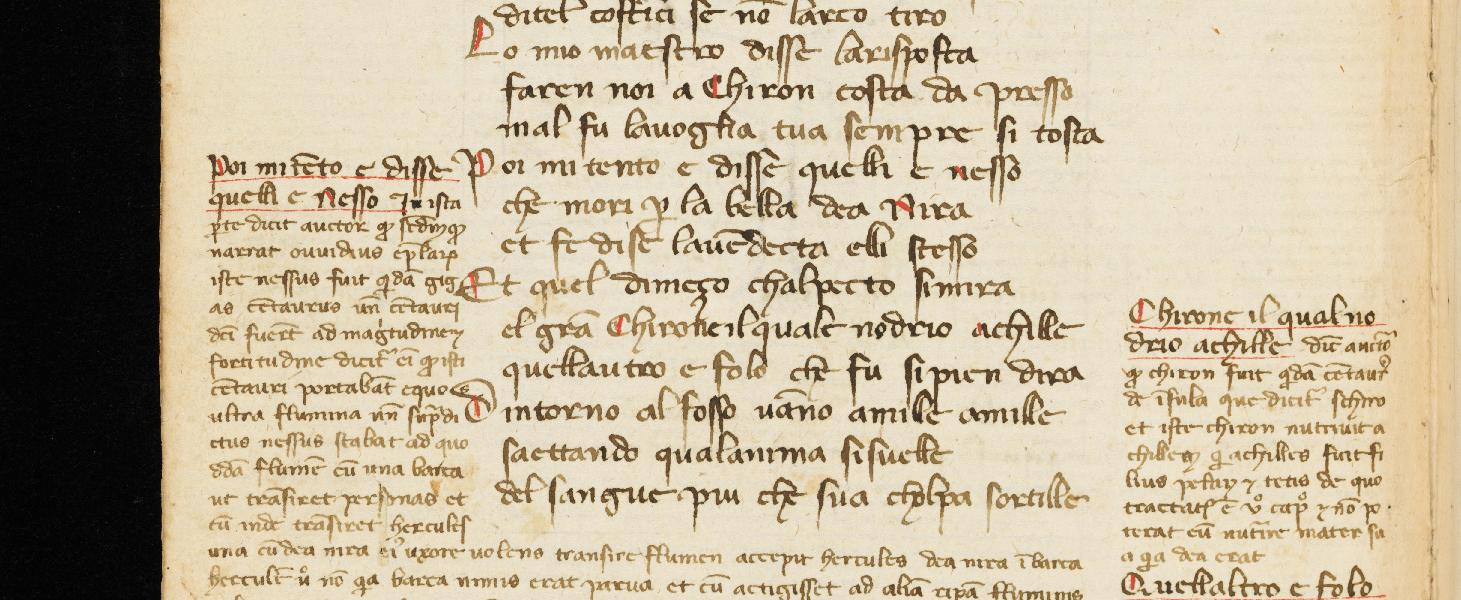 ditel costici se nō larco tiro
Lo mio maestro disse larisposta
faren noi a Chiron costa da presso
mal fu lavoglia tua sempre si tosta
Poi mi tento e disse quelli e nesso
che mori p la bella dea Nira
et fe dise lavēdecta elli stesso
Et quel dimeço chalpecto simira
el grā Chirone il quale nodrio achille
quellautro e folo che fu si pien dira
Dintorno al fosso vāno amille amille
saettando qualanima sisvelle
del sangue piu che sua cholpa sortille
Poi mi tēto e disse
quelli e Nesso In ista
pte dicit auctor
narrat ouuidius
iste nessus fuit qdā gig
as cētaurus un cētauri
dci fuerūt ad magtudinem
fortitudine dicitr ei qp isti
cētauri portabāt equo
ultra flumina un supdi
ctus nessus stabat ad quo
ddā flumē cū una barca
ut trāsiret personas et
cū inde trāsiret hercules
una cū dea nira ei uxore volens transire flumen accepit hercules dea nira ī barca
herculē u nō qa barca nimis erat parua et cū actigisset ad aliā ripā fluminis
Chirone il qual no
drio achille dic aucto
qp chiron fuit qdā cētaur
de īsula que dicit schiro
et iste chiron nutriuit a
chillem q achilles fuit fi
lius pelay et tetis de quo
tractat ē
terat eū nutrire mater su
a qa dea erat
Quellaltro e folo